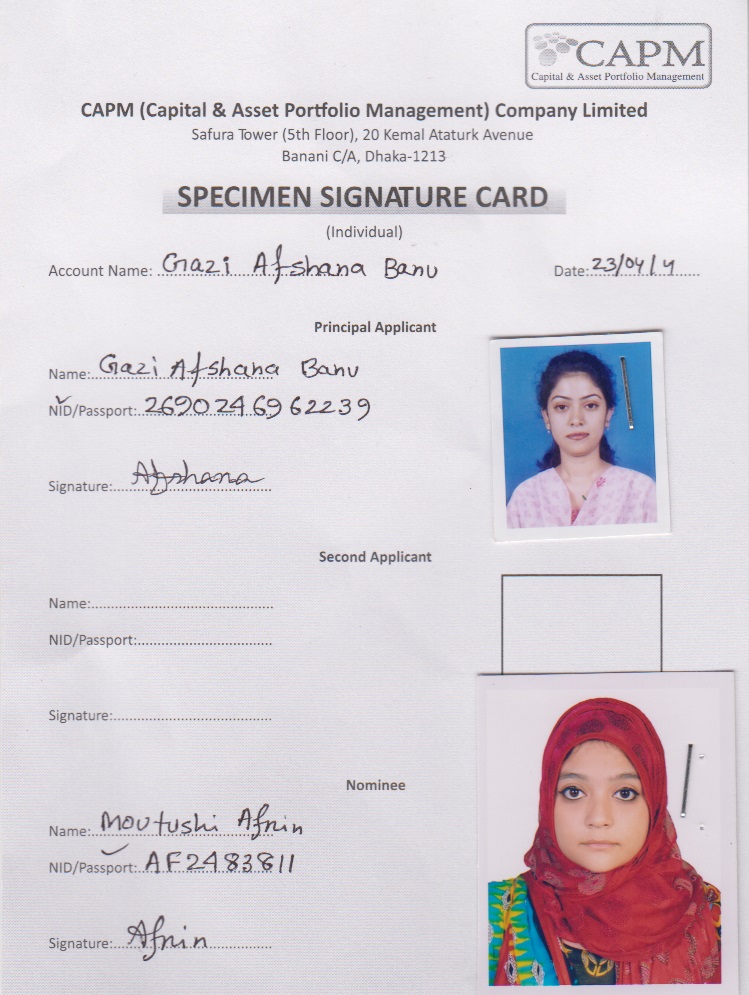 CAPM
Capital & Asset Portfolio Management
CAPM (Capital & Asset Portfolio Management) Company Limited
Safura Tower (5th Floor), 20 Kemal Ataturk Avenue
Banani C/A, Dhaka-1213
SPECIMEN SIGNATURE CARD
(Individual)
Account Name: Gazi Afshana Banu Date: 23/04/
Principal Applicant
Name: Gazi Afshana Banu
NID/Passport: 2690246962239
Signature: Afshana
Second Applicant
Name:
NID/Passport:
Signature:
Nominee
Name: Moutushi Afnin
NID/Passport: AF2483811
Signature: Afnin